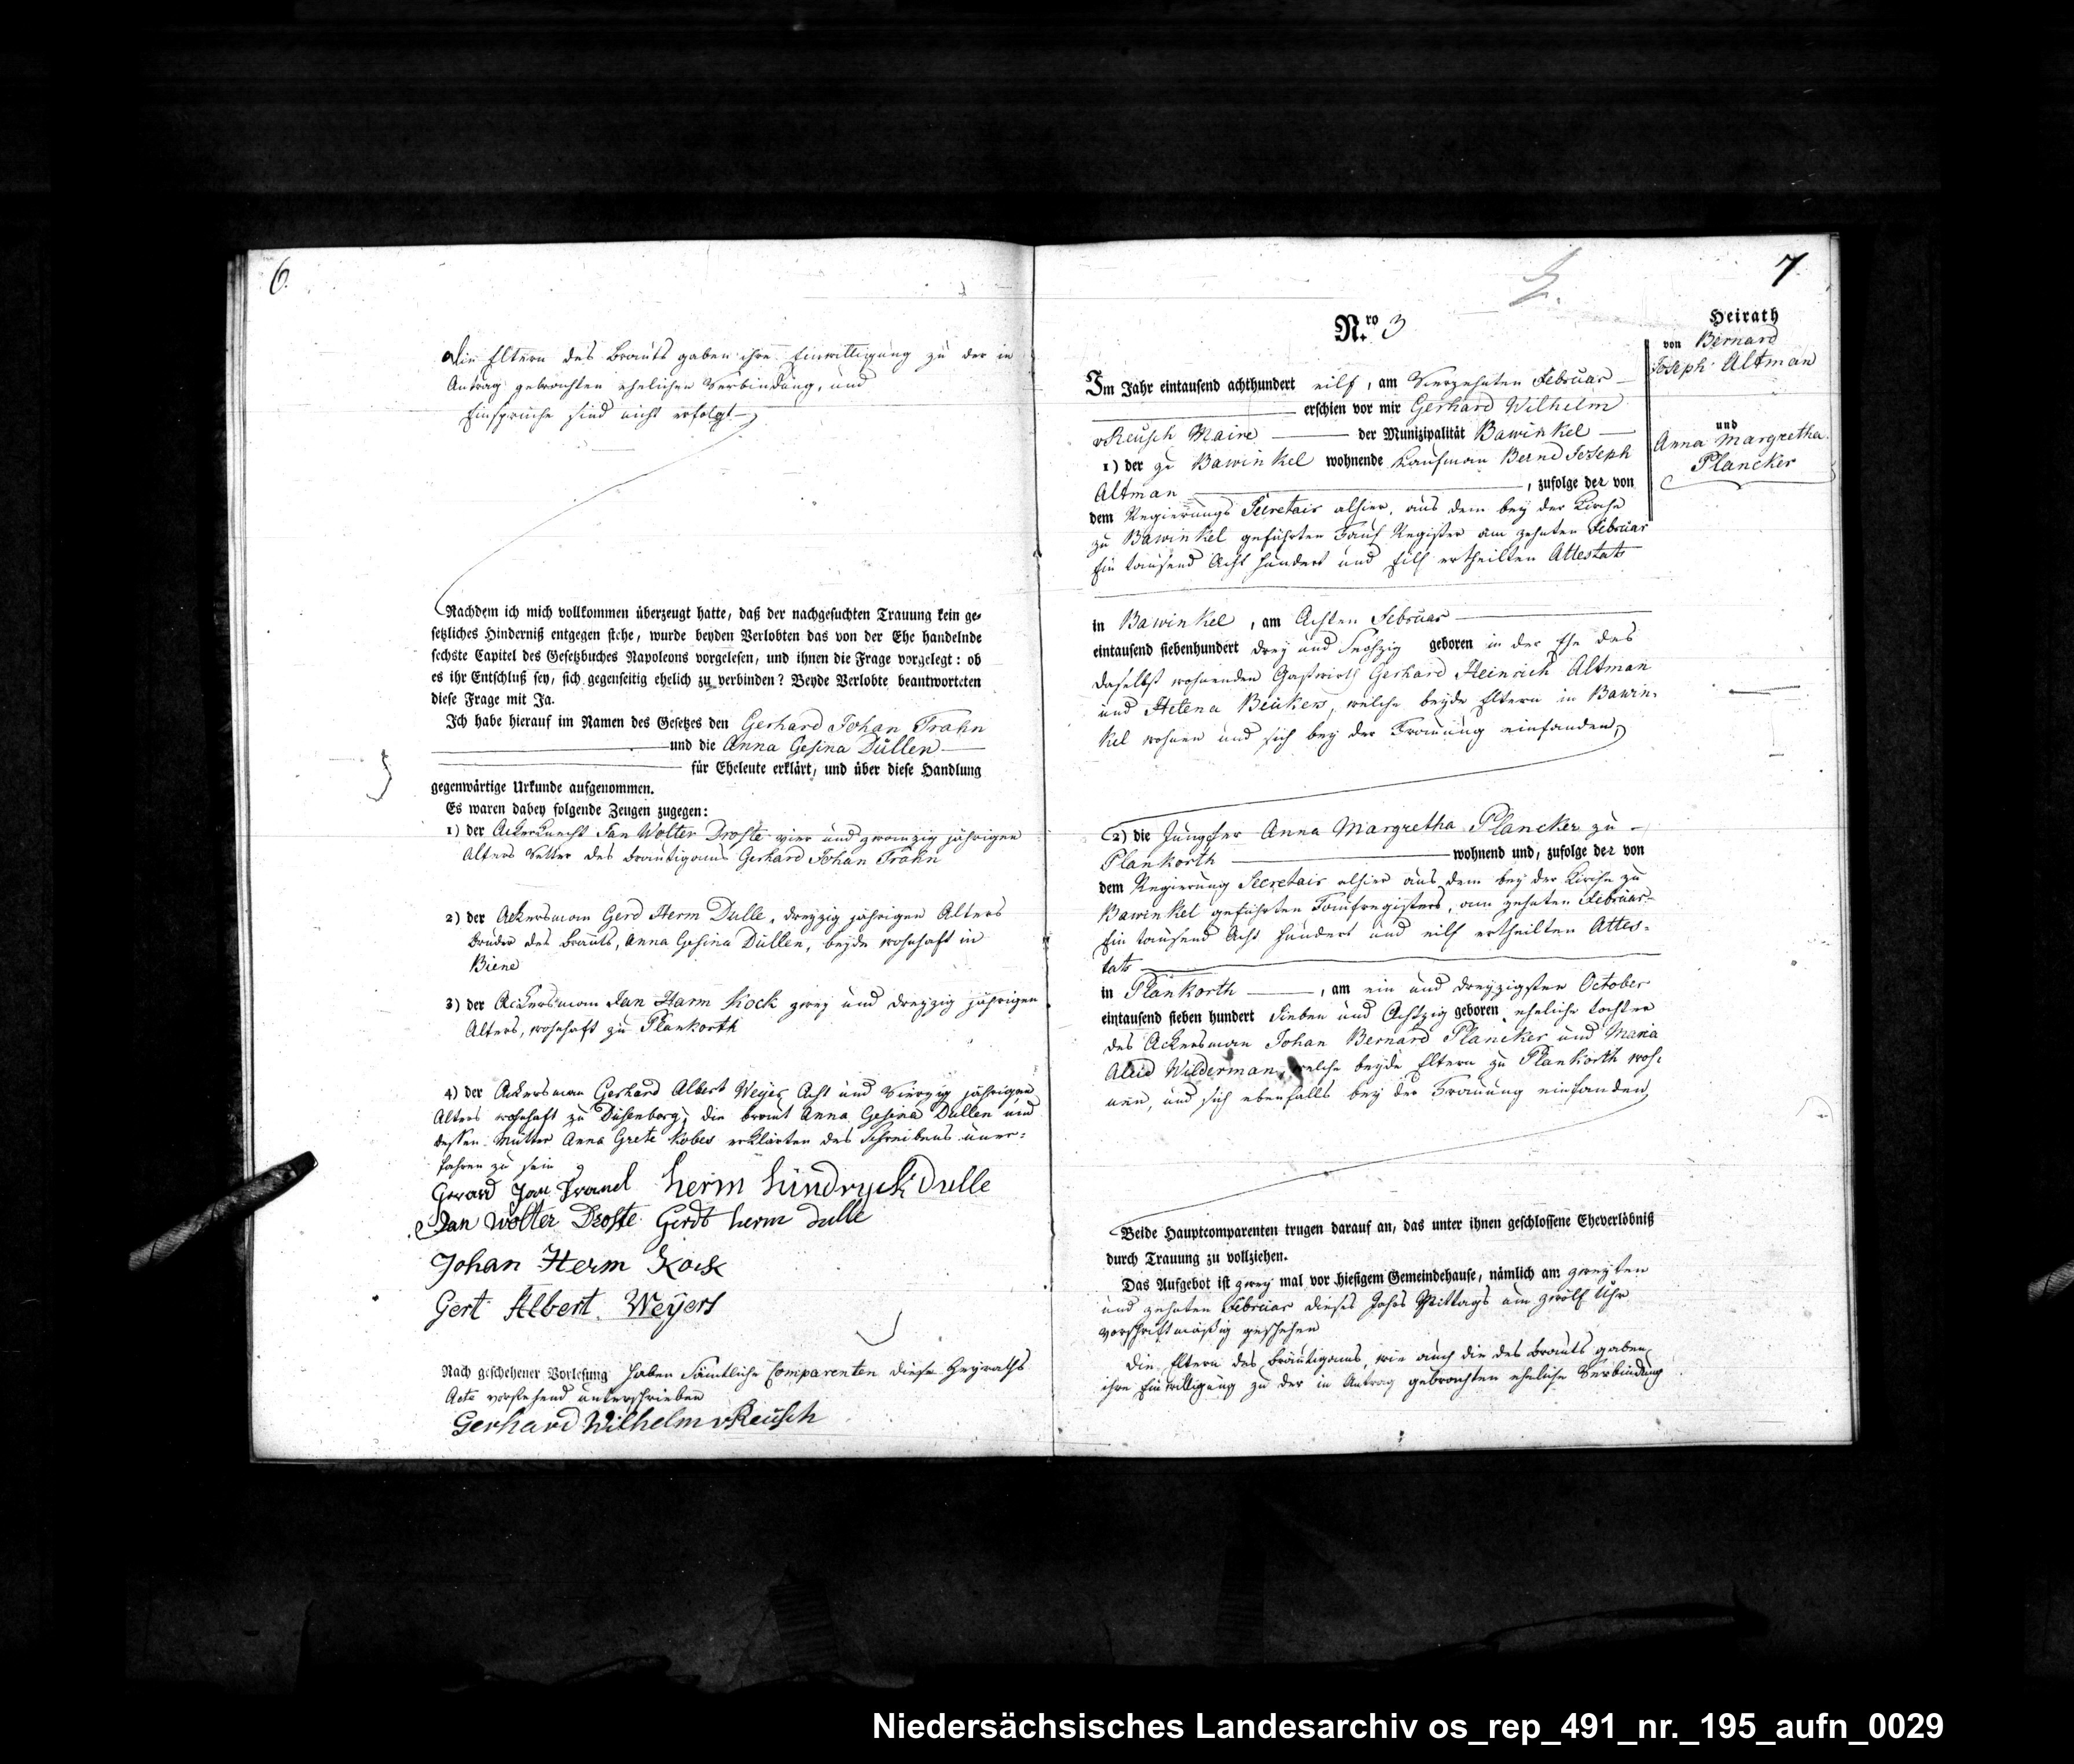 6.
die Eltern des Brauts gaben ihre Einwilligung zu der in
Antrag gebrachten ehelichen Verbindung, und
Einsprüche sind nicht erfolgt
Nachdem ich mich vollkommen überzeugt hatte, daß der nachgesuchten Trauung kein ge-
setzliches Hinderniß entgegen stehe, wurde beyden Verlobten das von der Ehe handelnde
sechste Capitel des Gesetzbuches Napoleons vorgelesen, und ihnen die Frage vorgelegt: ob
es ihr Entschluß sey, sich gegenseitig ehelich zu verbinden? Beyde Verlobte beantworteten
diese Frage mit Ja.
Ich habe hierauf im Namen des Gesetzes den Gerhard Johan Trahn
und die Anna Gesina Düllen
für Eheleute erklärt, und über diese Handlung
gegenwärtige Urkunde aufgenommen.
Es waren dabey folgende Zeugen zugegen:
1) der Ackerknecht Jan Wolter Droste vier und zwanzig jährigen
Alters Vetter des Bräutigams Gerhard Johan Trahn
2) der Ackersman Gerd Herm Dulle, dreyzig jährigen Alters
Bruder des Brauts, Anna Gesina Düllen, beyde wohnhaft in
Biene
3) der Ackersman Jan Harm Kock zwey und dreyzig jährigen
Alters, wohnhaft zu Plankorth
4) der Ackersman Gerhard Albert Weyer Acht und Vierzig jährigen
Alters wohnhaft zu Düsenborg; die Braut Anna Gesina Dullen und
dessen Mutter Anna Grete Kobes erklärten des Schreibens uner-
fahren zu sein
Gerard Jan Tranel herm hindryck Dulle
Jan Wolter Droste Gerdt herm Dulle
Johan Herm Kock
Gert Albert Weyers
Nach geschehener Vorlesung haben Sämtliche Comparenten diese Heyraths
Acte vorstehend unterschrieben
Gerhard Wilhelm vReusch
7
N.ro 3
Heirath
von Bernard
Joseph Altman
und
Anna Margretha
Plancker
Im Jahr eintausend achthundert eilf, am Vierzehnten Februar
erschien vor mir Gerhard Wilhelm
vReusch Maire der Munizipalität Bawinkel
1) der zu Bawinkel wohnende Kaufman Bernd Joseph
Altman, zufolge der von
dem Regierungs Secretair alhier, aus dem bey der Kirche
zu Bawinkel geführten Tauf Register am zehnten Februar
Ein tausend Acht hundert und Eilf ertheilten Attestats
in Bawinkel, am Achten Februar
eintausend siebenhundert drey und Sechzig geboren in der Ehe des
daselbst wohnenden Gastwirth Gerhard Heinrich Altman
und Helena Beükers, welche beyde Eltern in Bawin-
kel wohnen und sich bey der Trauung einfanden,
2) die Jungfer Anna Margretha Plancker zu
Plankorth wohnend und, zufolge der von
dem Regierung Secretair alhier aus dem bey der Kirche zu
Bawinkel geführten Taufregisters, am zehnten Februar
Ein tausend Acht hundert und eilf ertheilten Attes-
tats
in Plankorth, am ein und dreyzigsten October
eintausend sieben hundert Sieben und Achtzig geboren, eheliche tochter
des Ackersman Johan Bernard Plancker und Maria
Aleid Wilderman, welche beyde Eltern zu Plankorth woh-
nen, und sich ebenfalls bey der Trauung einfanden
Beide Hauptcomparenten trugen darauf an, das unter ihnen geschlossene Eheverlöbniß
durch Trauung zu vollziehen.
Das Aufgebot ist zwey mal vor hiesigem Gemeindehause, nämlich am zweyten
und zehnten Februar dieses Jahrs Mittags um zwölf Uhr
vorschriftmäßig geschehen
Die Eltern des Bräutigams, wie auch die des Brauts gaben
ihre Einwilligung zu der in Antrag gebrachten eheliche Verbindung
Niedersächsisches Landesarchiv os_rep_491_nr._195_aufn_0029